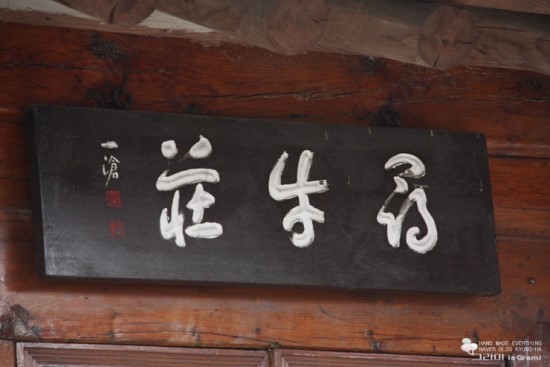 尋牛莊
一滄
HAND MADE EVERYTHING
NAVER BLOG KYUNG-HA
la Grami